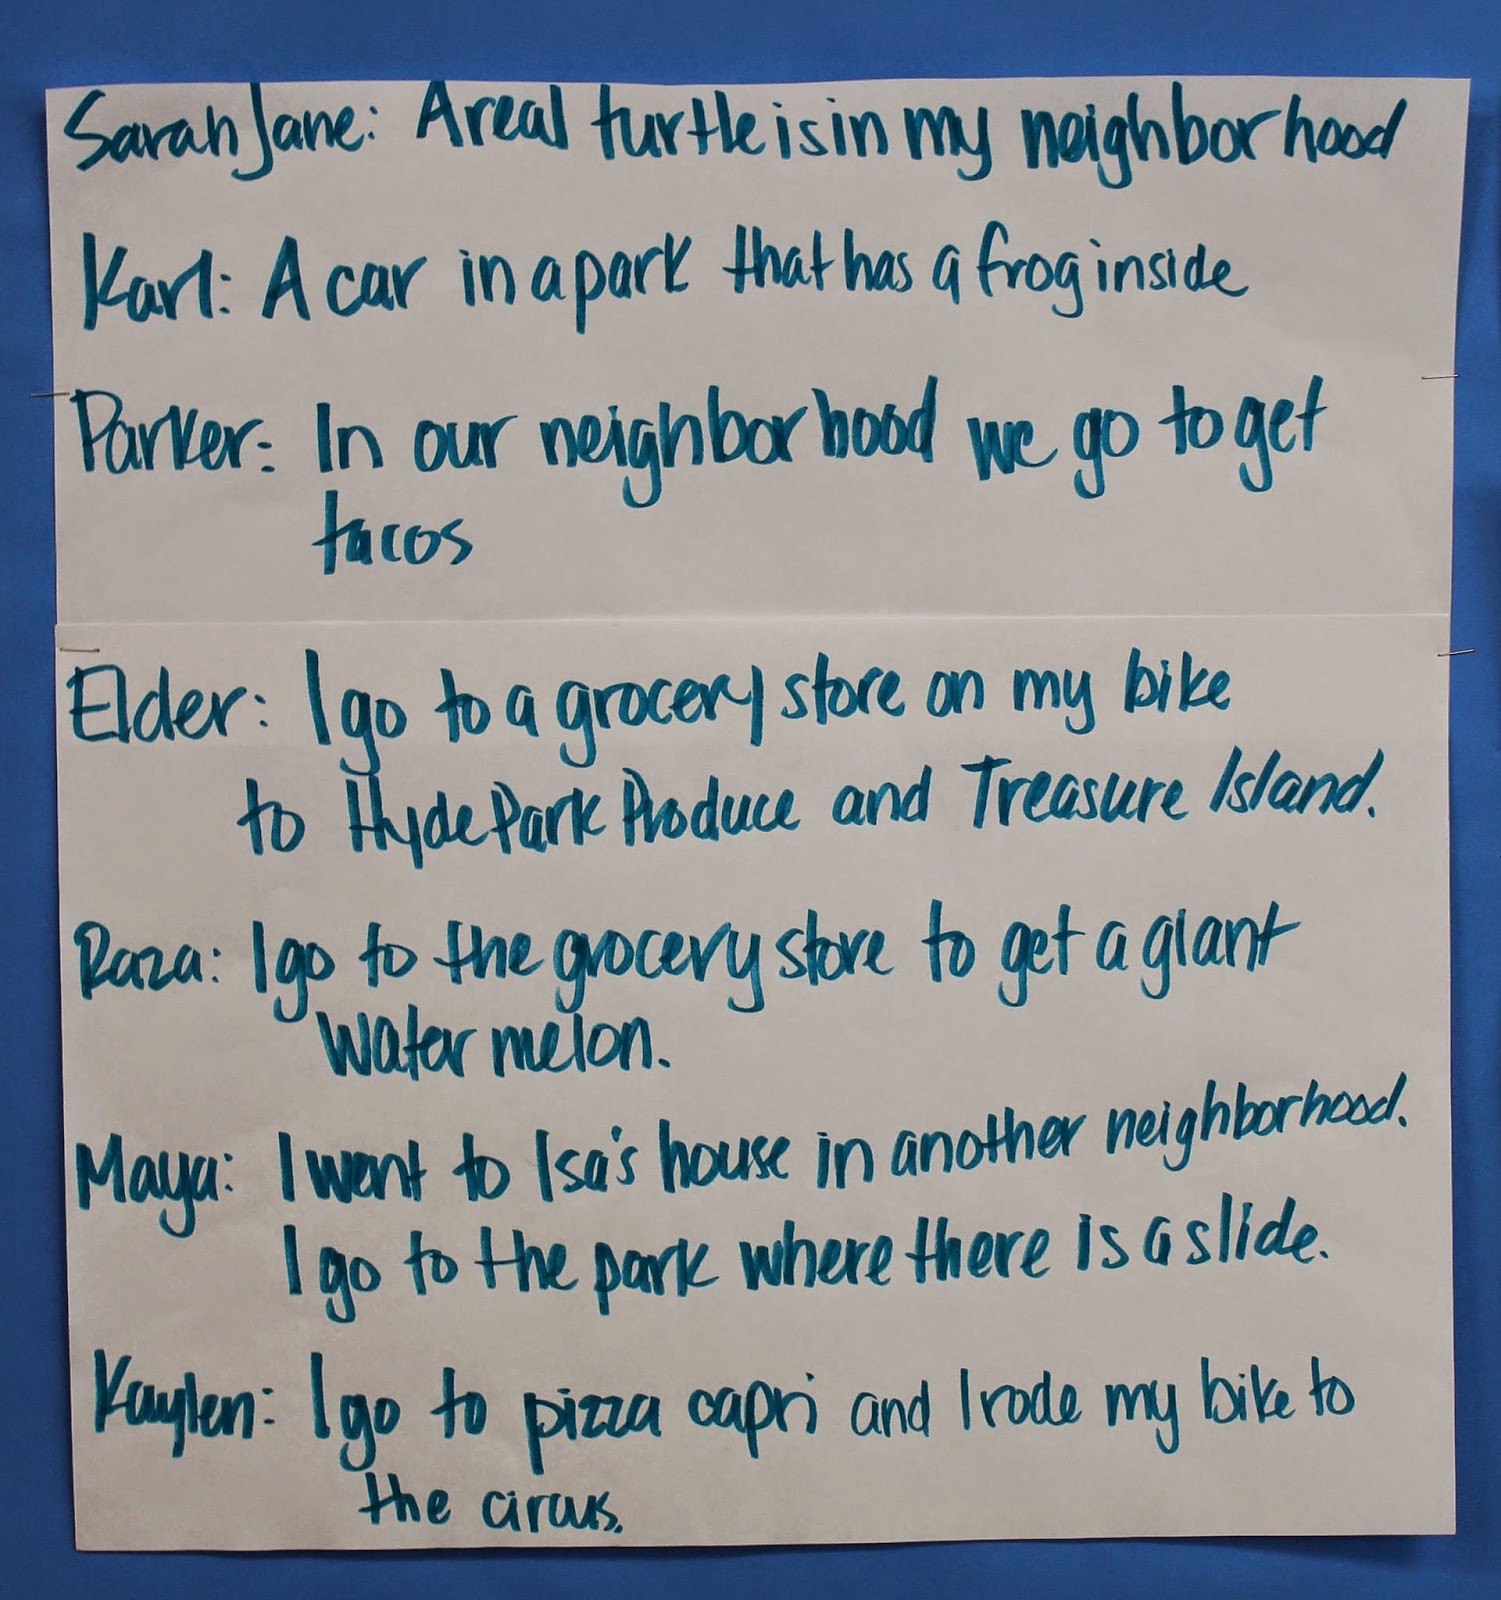 Sarah Jane: A real turtle is in my neighborhood
Karl: A car in a park that has a frog inside
Parker: In our neighborhood we go to get
tacos
Elder: I go to a grocery store on my bike
to Hyde Park Produce and Treasure Island.
Raza: I go to the grocery store to get a giant
water melon.
Maya: I went to Isa's house in another neighborhood.
I go to the park where there is a slide.
Kaylen: I go to pizza capri and I rode my bike to
the circus.